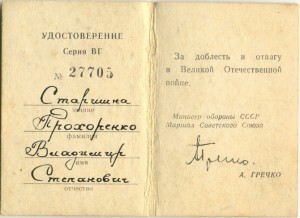 УДОСТОВЕРЕНИЕ
Серия ВГ
№ 27705
Старшина
звание
Прохоренко
фамилия
Владимир
имя
Степанович
отчество
За доблесть и отвагу
в Великой Отечественной
войне.
Министр обороны СССР
Маршал Советского Союза
А. ГРЕЧКО